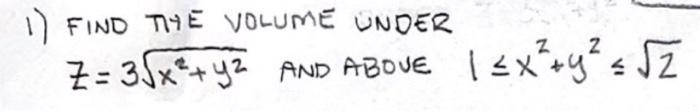 1) FIND THE VOLUME UNDER
Z = 3√(x²+y²) AND ABOVE 1 ≤ x²+y² ≤ √2